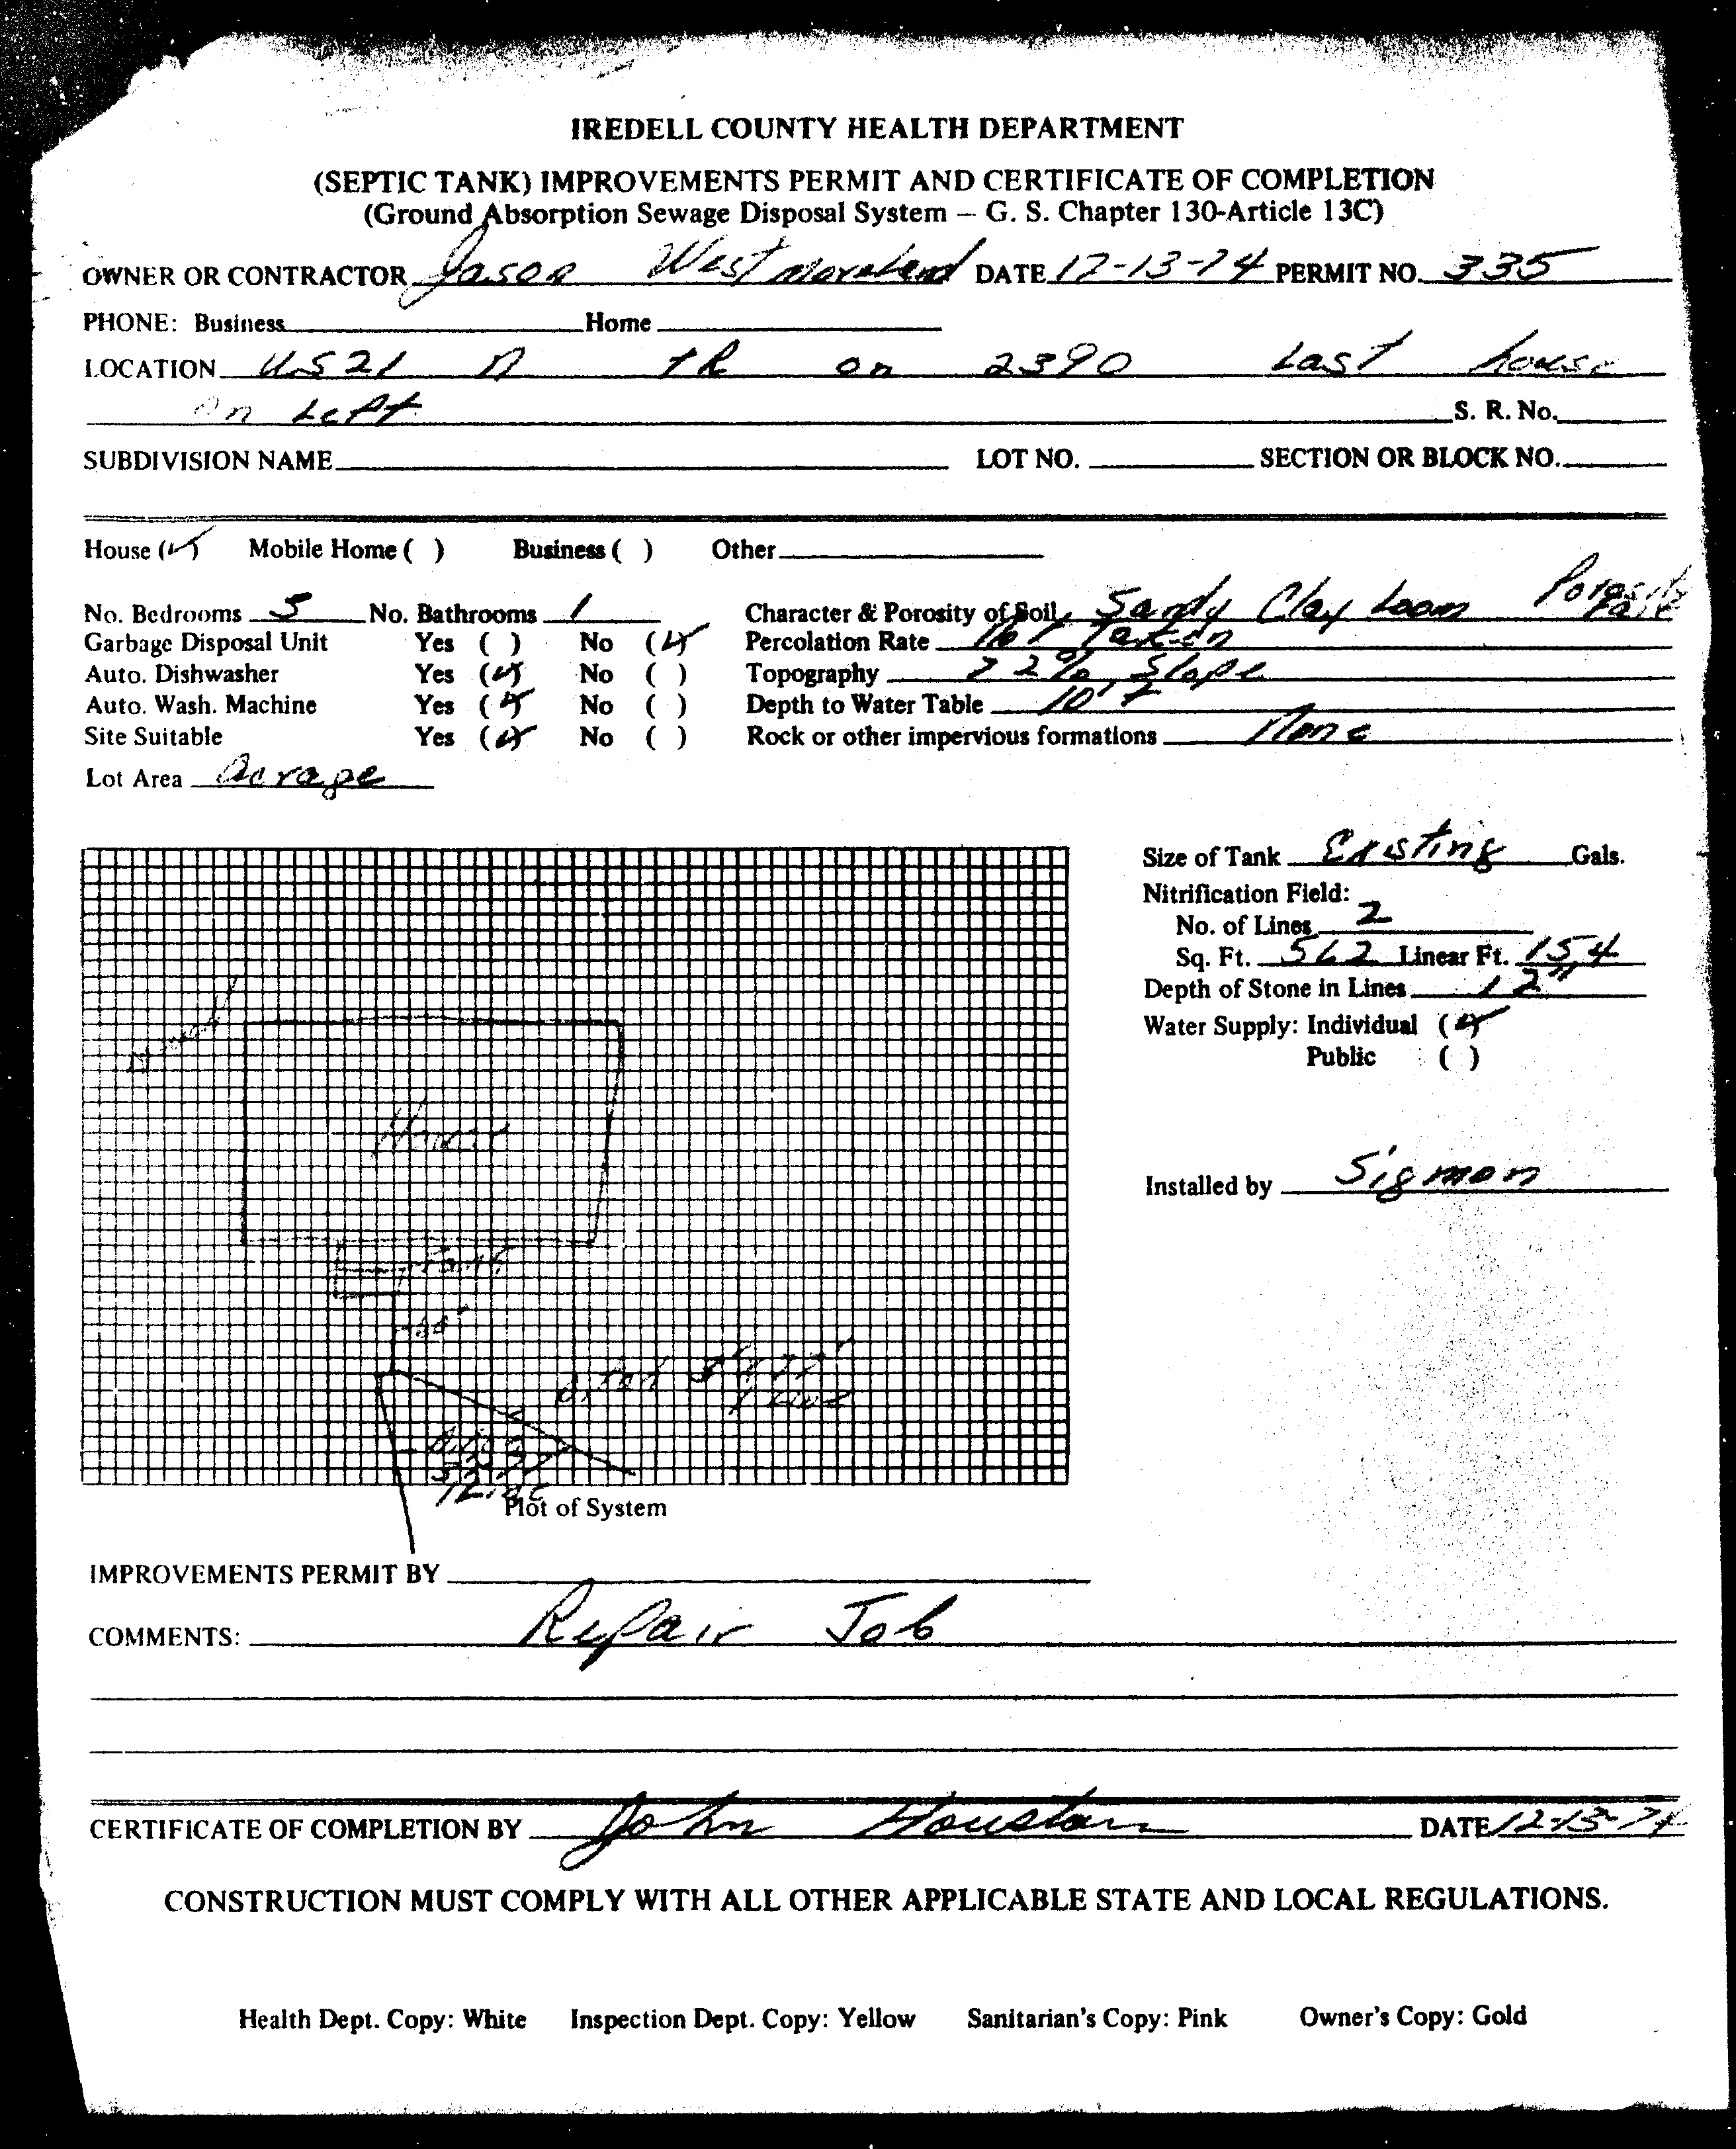 IREDELL COUNTY HEALTH DEPARTMENT
(SEPTIC TANK) IMPROVEMENTS PERMIT AND CERTIFICATE OF COMPLETION
(Ground Absorption Sewage Disposal System — G. S. Chapter 130-Article 13C)
OWNER OR CONTRACTOR Jason Westmoreland DATE 12-13-74 PERMIT NO. 335
PHONE: Business Home
LOCATION US21 N TR on 2390 Last house
on Left S. R. No.
SUBDIVISION NAME LOT NO. SECTION OR BLOCK NO.
House (✓) Mobile Home ( ) Business ( ) Other
No. Bedrooms 5 No. Bathrooms 1 Character & Porosity of Soil Sandy Clay Loam Porosity Fair
Garbage Disposal Unit Yes ( ) No (✓) Percolation Rate Not Taken
Auto. Dishwasher Yes (✓) No ( ) Topography 22% Slope
Auto. Wash. Machine Yes (✓) No ( ) Depth to Water Table 10'+
Site Suitable Yes (✓) No ( ) Rock or other impervious formations None
Lot Area Acrage
Size of Tank Existing Gals.
Nitrification Field:
No. of Lines 2
Sq. Ft. 562 Linear Ft. 154
Depth of Stone in Lines 12"
Water Supply: Individual (✓)
Public ( )
House
Installed by Sigmon
Tank
Ditch 3'x77'
1 Line
Plot of System
IMPROVEMENTS PERMIT BY
COMMENTS: Repair Job
CERTIFICATE OF COMPLETION BY John Houston DATE 12-13-74
CONSTRUCTION MUST COMPLY WITH ALL OTHER APPLICABLE STATE AND LOCAL REGULATIONS.
Health Dept. Copy: White Inspection Dept. Copy: Yellow Sanitarian's Copy: Pink Owner's Copy: Gold